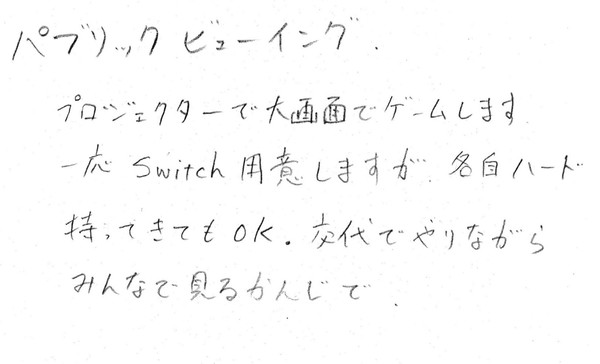 パブリックビューイング.
プロジェクターで大画面でゲームします
一応 Switch 用意しますが、各自ハード
持ってきてもOK. 交代でやりながら
みんなで見るかんじで.